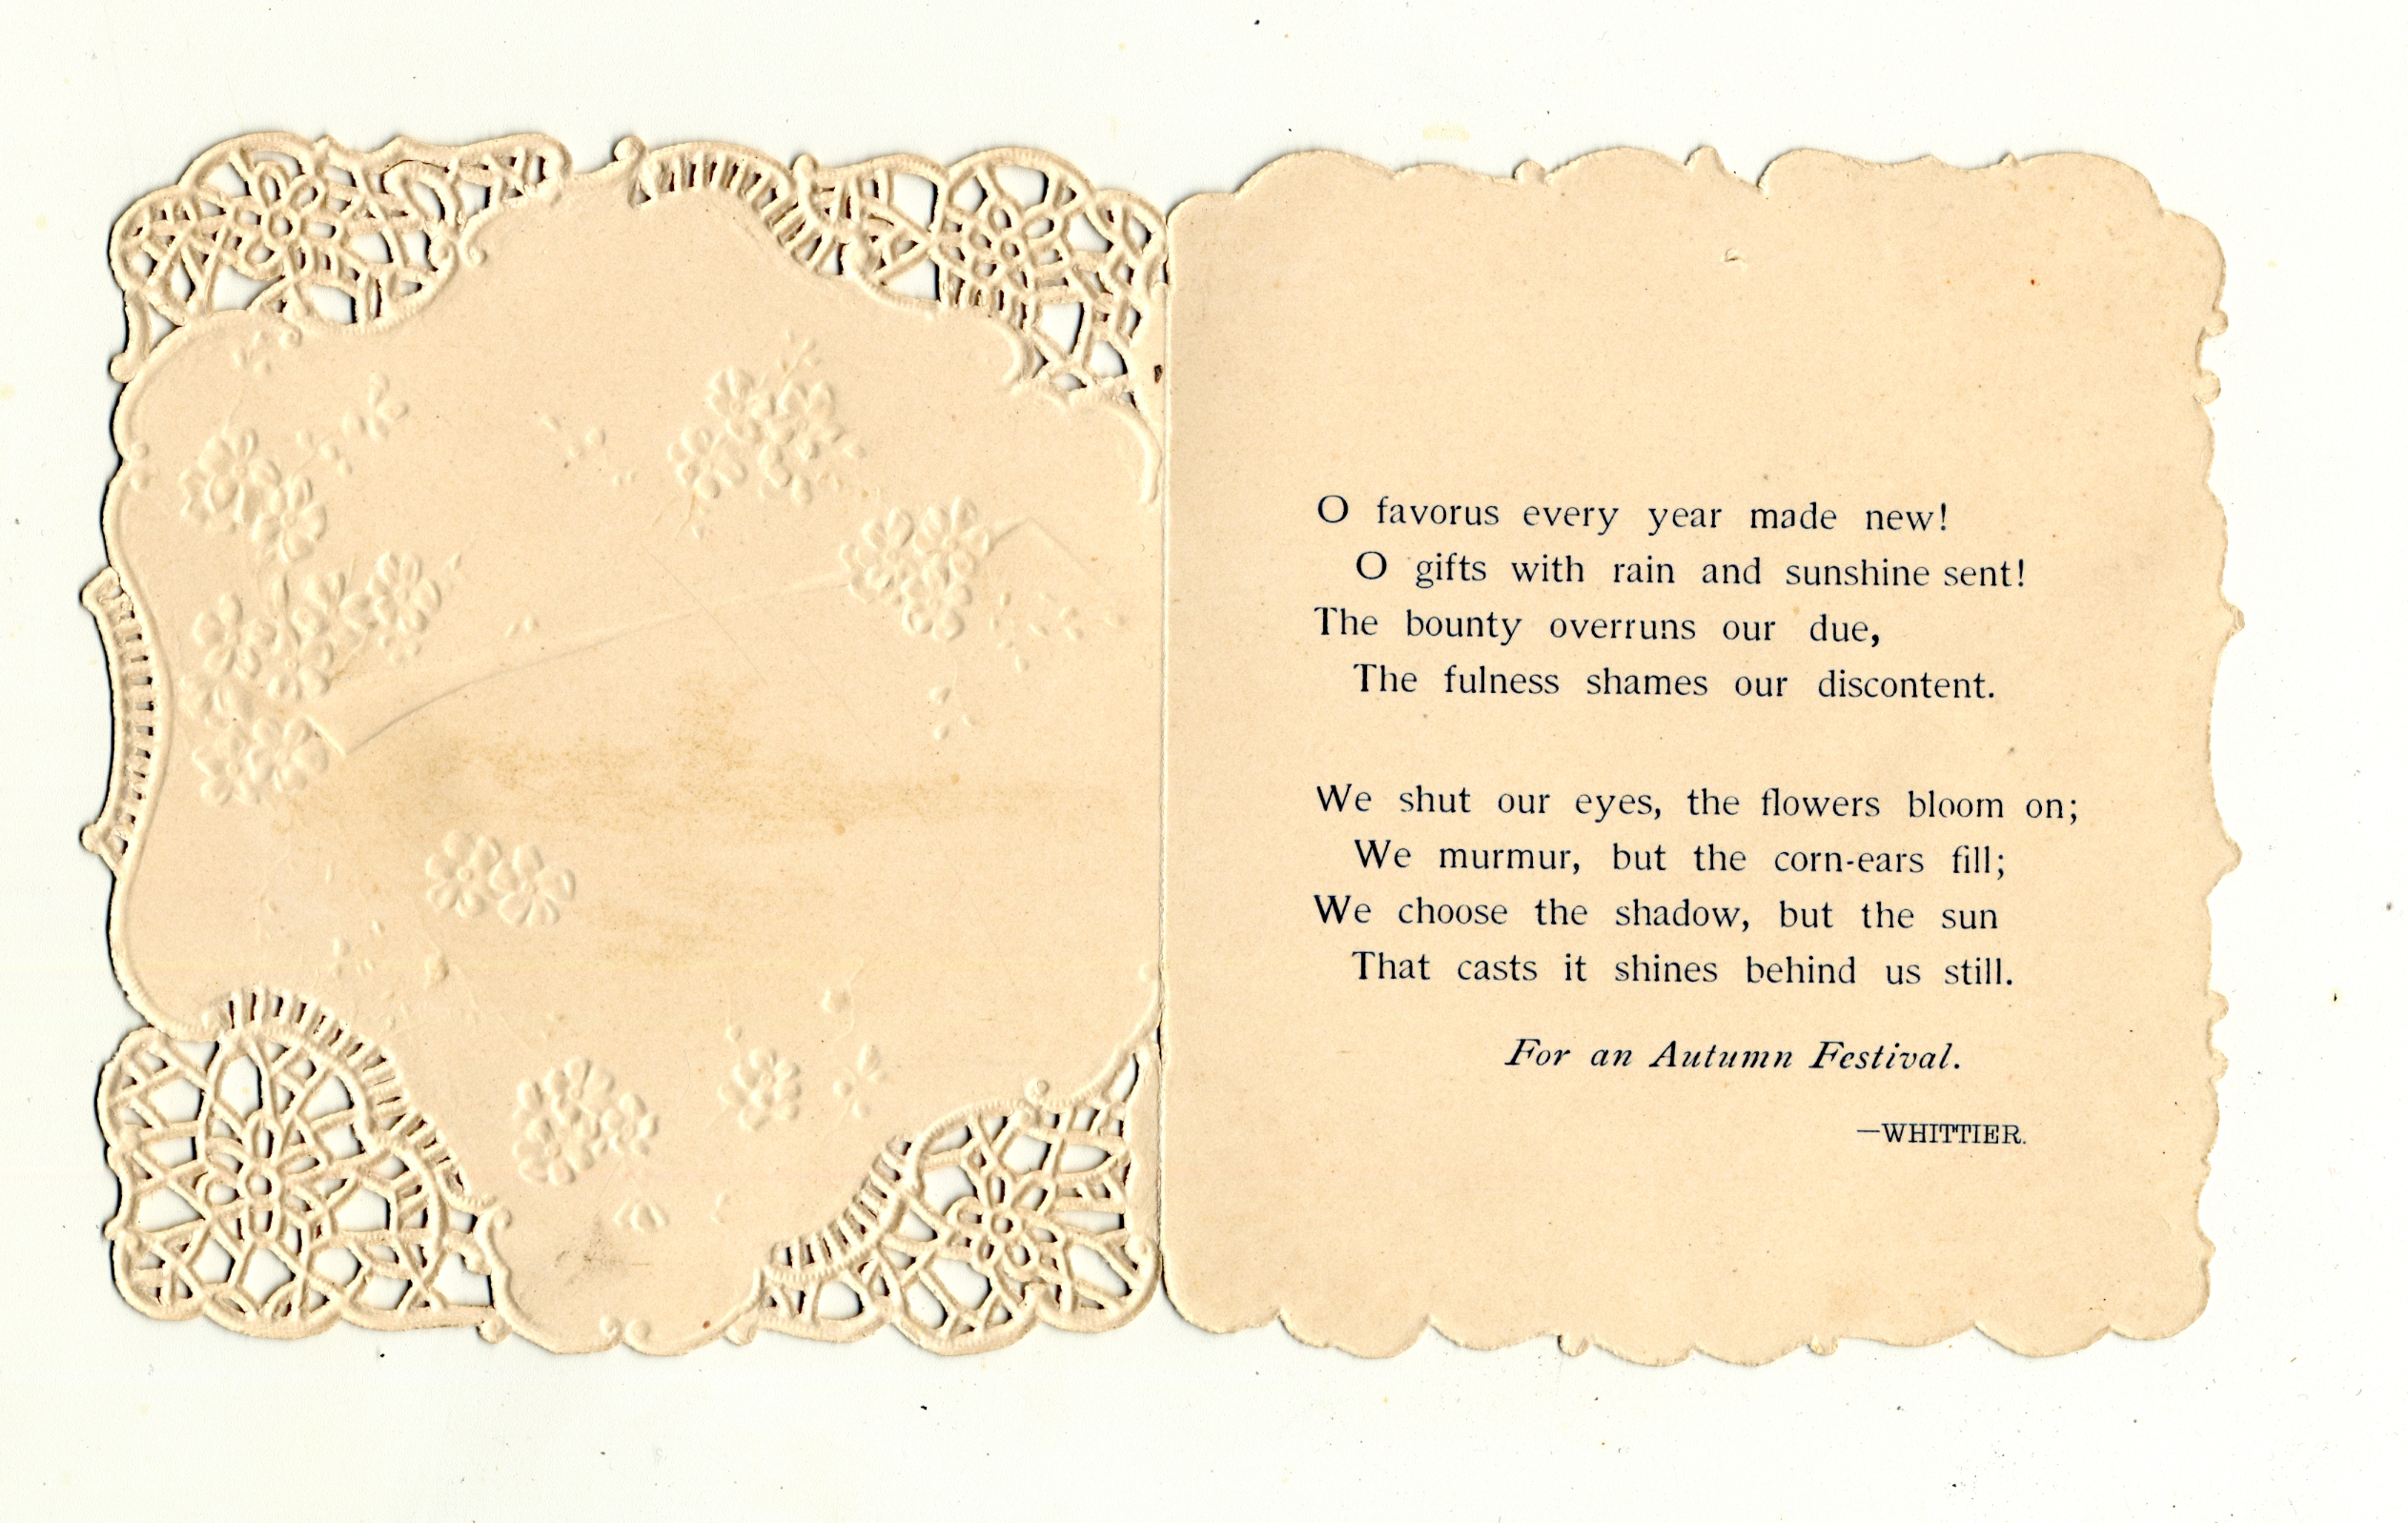 O favorus every year made new!
O gifts with rain and sunshine sent!
The bounty overruns our due,
The fulness shames our discontent.
We shut our eyes, the flowers bloom on;
We murmur, but the corn-ears fill;
We choose the shadow, but the sun
That casts it shines behind us still.
For an Autumn Festival.
—WHITTIER.